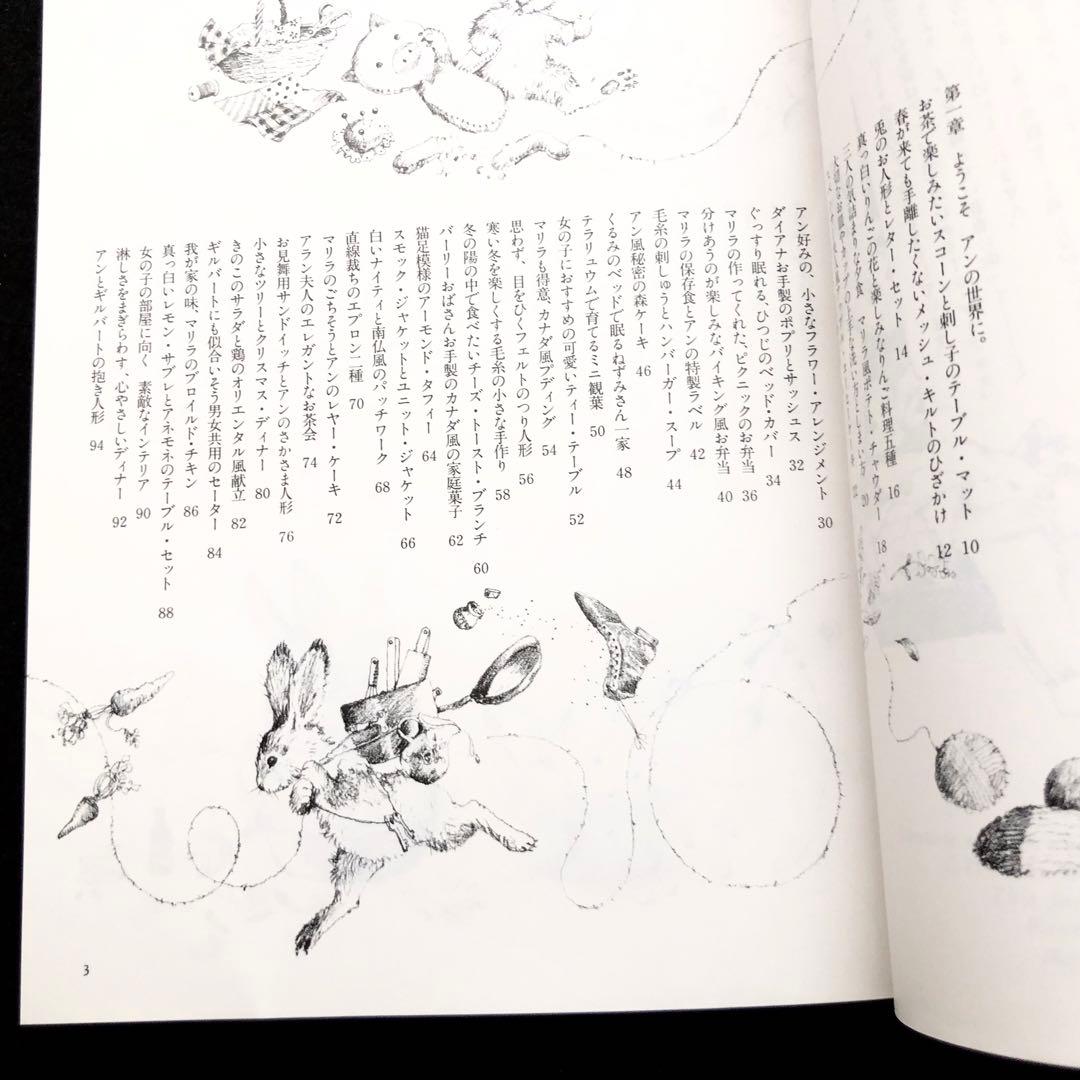 第一章　ようこそ　アンの世界に。
お茶で楽しみたいスコーンと刺し子のテーブル・マット　10
春が来ても手離したくないメッシュ・キルトのひざかけ　12
兎のお人形とレター・セット　14
真っ白いりんごの花と楽しみなりんご料理五種　16
三人の気詰まりな夕食　マリラ風ポテト・チャウダー　18
20
アン好みの、小さなフラワー・アレンジメント　30
ダイアナお手製のポプリとサッシュス　32
ぐっすり眠れる、ひつじのベッド・カバー　34
マリラの作ってくれた、ピクニックのお弁当　36
分けあうのが楽しみなバイキング風お弁当　40
マリラの保存食とアンの特製ラベル　42
毛糸の刺しゅうとハンバーガー・スープ　44
アン風秘密の森ケーキ　46
くるみのベッドで眠るねずみさん一家　48
テラリュウムで育てるミニ観葉　50
女の子におすすめの可愛いティー・テーブル　52
マリラも得意、カナダ風プディング　54
思わず、目をひくフェルトのつり人形　56
寒い冬を楽しくする毛糸の小さな手作り　58
冬の陽の中で食べたいチーズ・トースト・ブランチ　60
バーリーおばさんお手製のカナダ風の家庭菓子　62
猫足模様のアーモンド・タフィー　64
スモック・ジャケットとユニット・ジャケット　66
白いナイティと南仏風のパッチワーク　68
直線裁ちのエプロン二種　70
マリラのごちそうとアンのレヤー・ケーキ　72
アラン夫人のエレガントなお茶会　74
お見舞用サンドイッチとアンのさかさま人形　76
小さなツリーとクリスマス・ディナー　80
きのこのサラダと鶏のオリエンタル風献立　82
ギルバートにも似合いそう男女共用のセーター　84
我が家の味、マリラのブロイルドチキン　86
真っ白いレモン・サブレとアネモネのテーブル・セット　88
女の子の部屋に向く　素敵なインテリア　90
淋しさをまぎらわす、心やさしいディナー　92
アンとギルバートの抱き人形　94
3